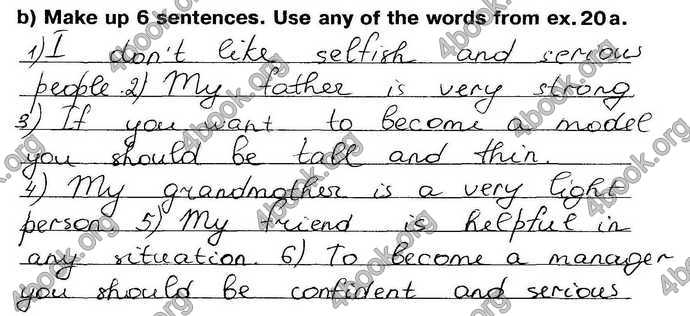 b) Make up 6 sentences. Use any of the words from ex. 20 a.
1) I don't like selfish and serious
people. 2) My father is very strong
3) If you want to become a model
you should be tall and thin.
4) My grandmother is a very light
person 5) My friend is helpful in
any situation. 6) To become a manager
you should be confident and serious
4book.org